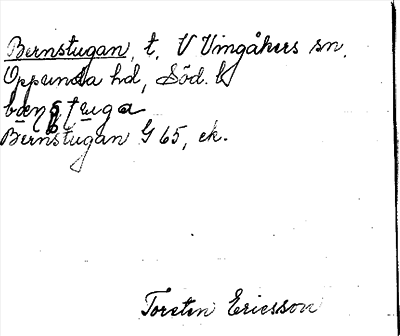 Bernstugan, t. V Vingåkers sn.
Oppunda hd, Söd. l
Bernstugan G 65, ek.
Torsten Ericsson